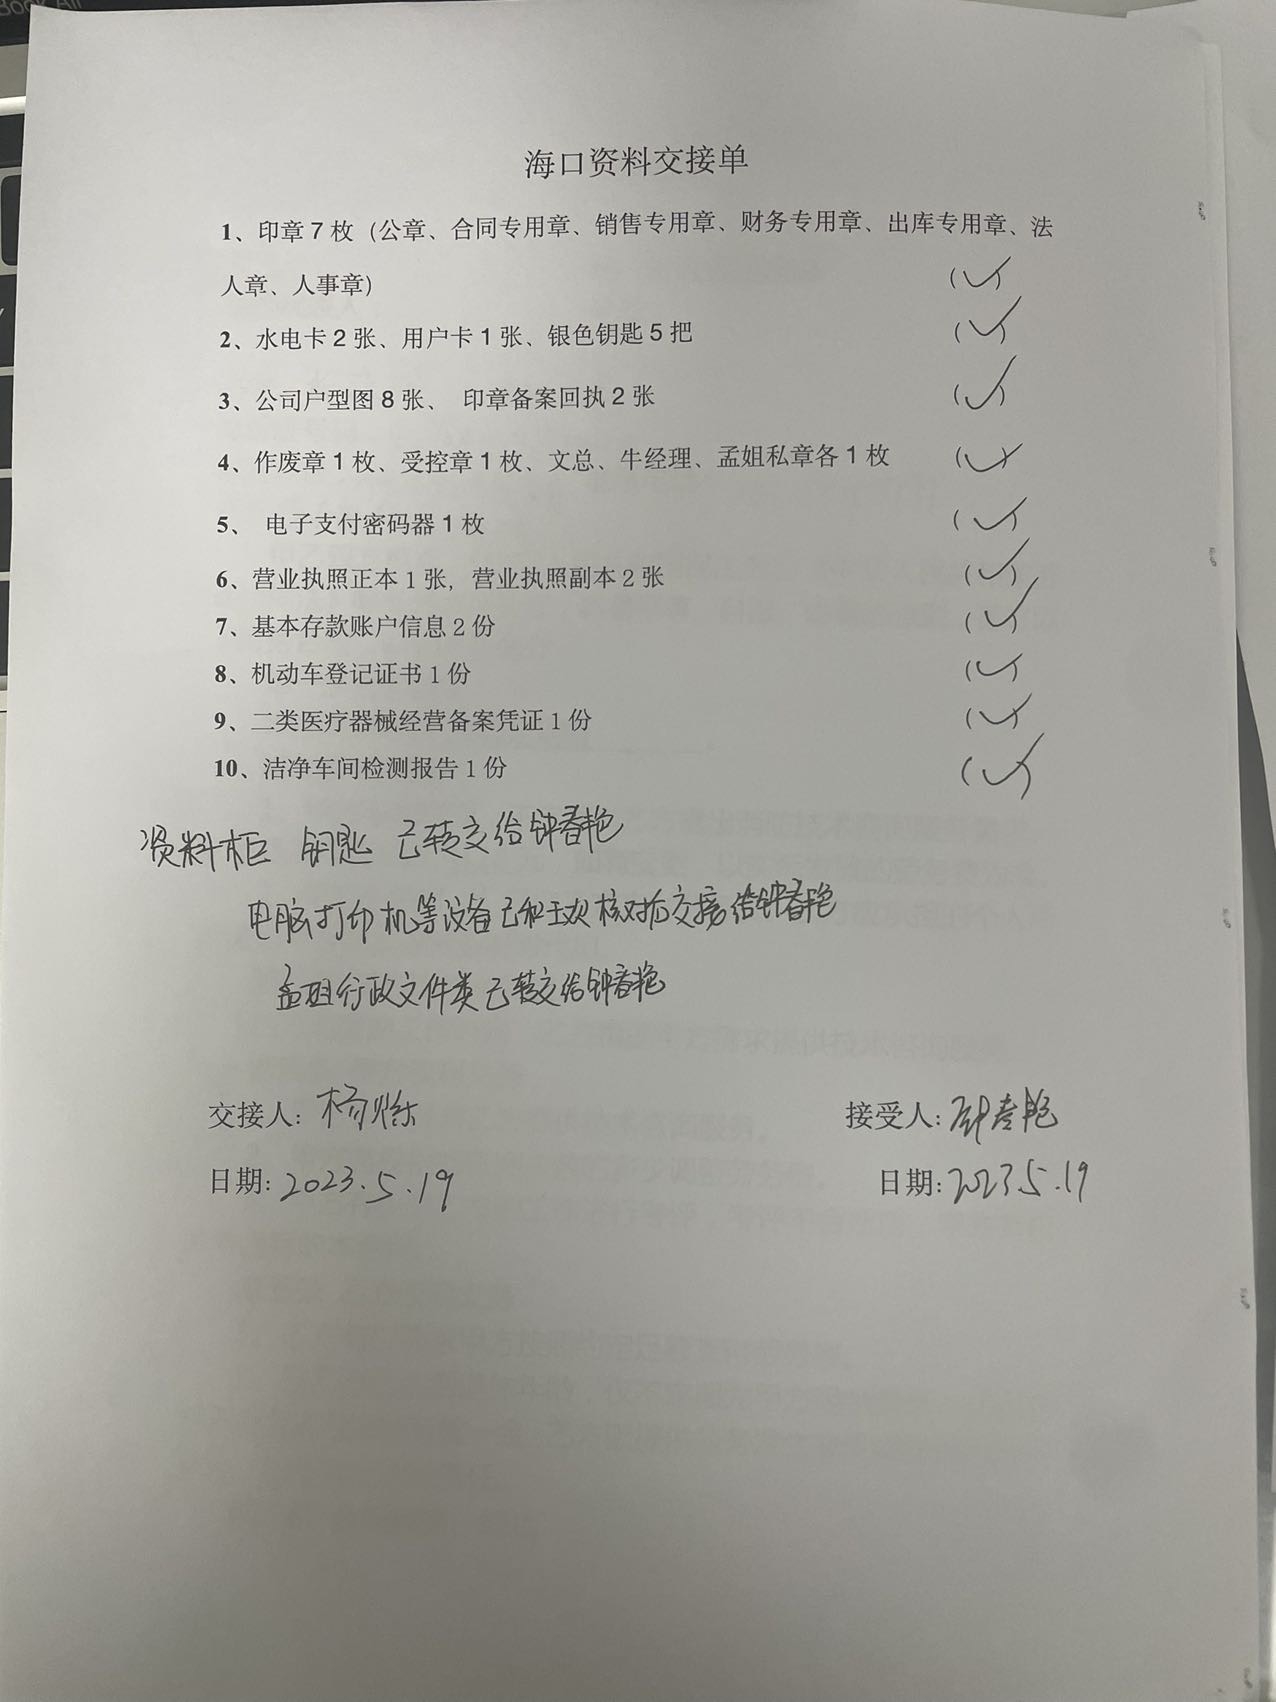 海口资料交接单
1、印章 7 枚（公章、合同专用章、销售专用章、财务专用章、出库专用章、法
人章、人事章） (✓)
2、水电卡 2 张、用户卡 1 张、银色钥匙 5 把 (✓)
3、公司户型图 8 张、 印章备案回执 2 张 (✓)
4、作废章 1 枚、受控章 1 枚、文总、牛经理、孟姐私章各 1 枚 (✓)
5、 电子支付密码器 1 枚 (✓)
6、营业执照正本 1 张，营业执照副本 2 张 (✓)
7、基本存款账户信息 2 份 (✓)
8、机动车登记证书 1 份 (✓)
9、二类医疗器械经营备案凭证 1 份 (✓)
10、洁净车间检测报告 1 份 (✓)
资料柜 钥匙 已转交给钟春艳
电脑打印机等设备已和王欢核对后交接给钟春艳
孟姐行政文件类已转交给钟春艳
交接人：杨 接受人：钟春艳
日期：2023.5.19 日期：2023.5.19